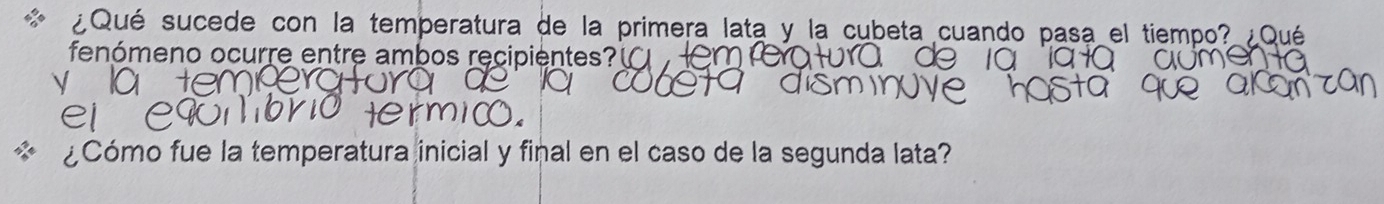 ❖ ¿Qué sucede con la temperatura de la primera lata y la cubeta cuando pasa el tiempo? ¿Qué
fenómeno ocurre entre ambos recipientes? la temperatura de la lata aumenta
y la temperatura de la cobeta disminuye hasta que alcanzan
el equilibrio termico.
❖ ¿Cómo fue la temperatura inicial y final en el caso de la segunda lata?